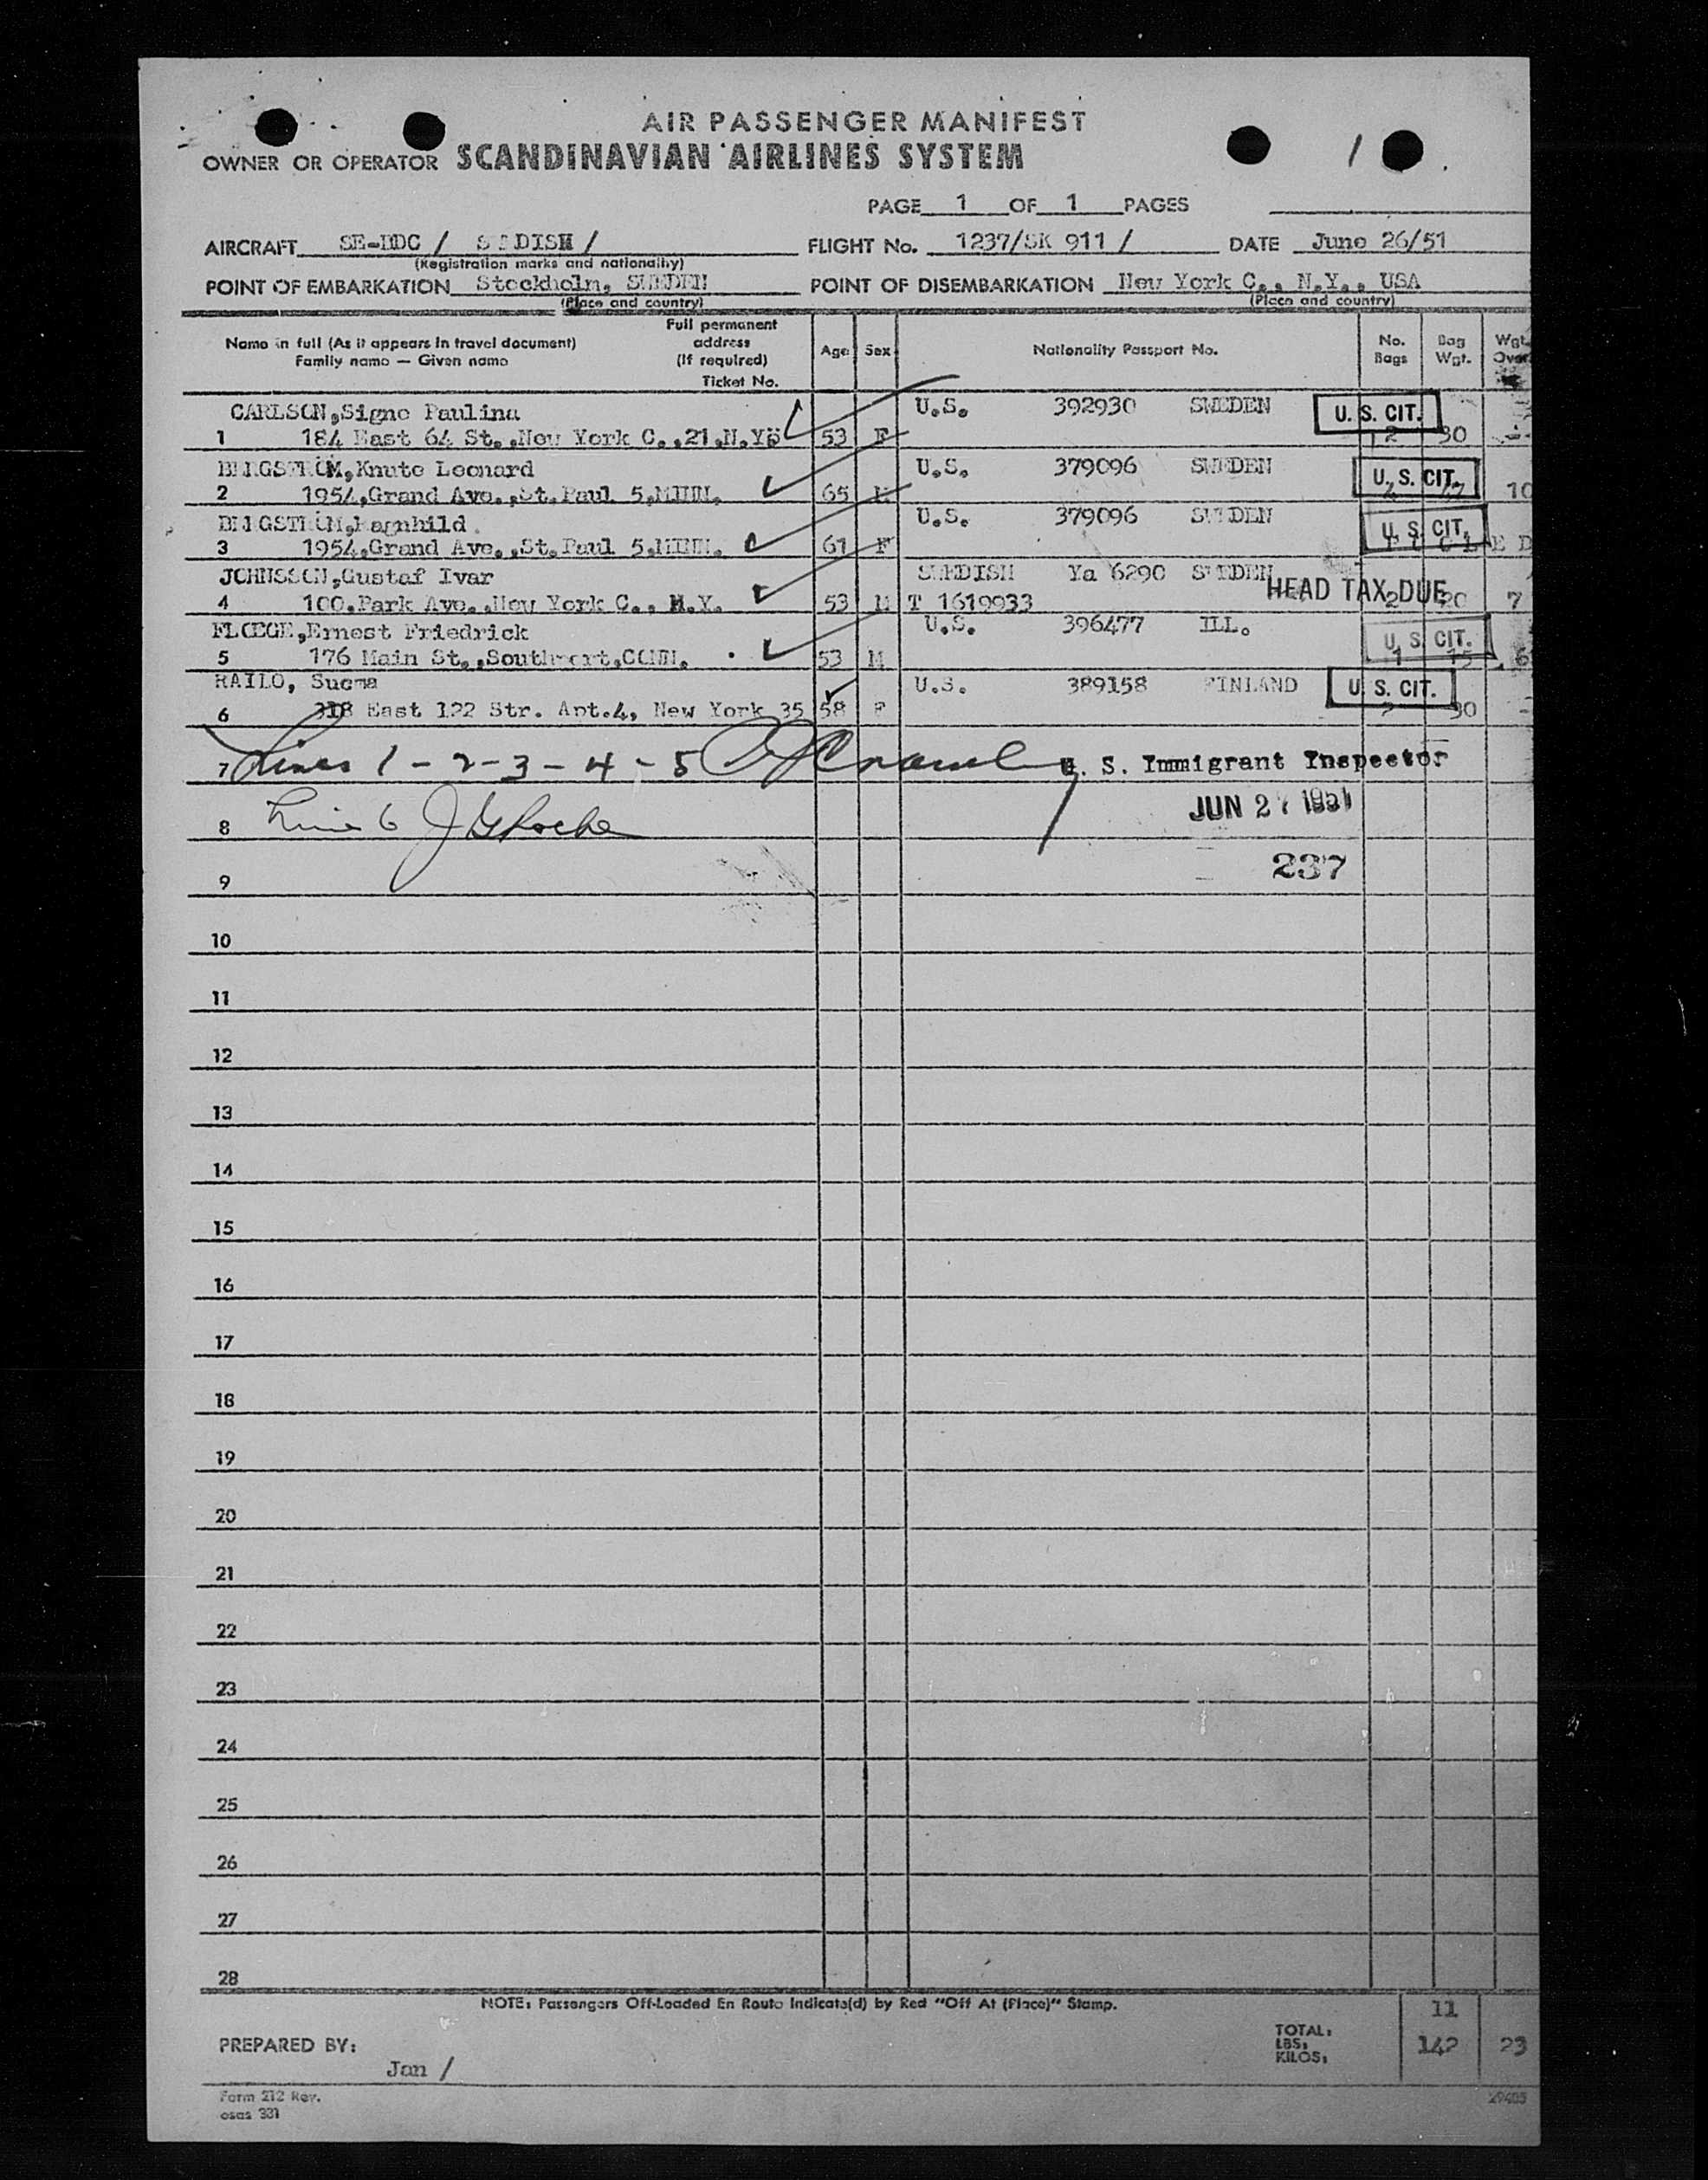 AIR PASSENGER MANIFEST
OWNER OR OPERATOR SCANDINAVIAN AIRLINES SYSTEM
1
PAGE 1 OF 1 PAGES
AIRCRAFT SE-BDC / FLIGHT No. 1237/SK 911 / DATE June 26/51
(Registration marks and nationality)
POINT OF EMBARKATION Stockholm, SWEDEN POINT OF DISEMBARKATION New York C., N.Y., USA
(Place and country) (Place and country)
Name in full (As it appears in travel document)
Family name — Given name
Full permanent
address
(If required)
Ticket No.
Age Sex Nationality Passport No. No. Bags Bag Wgt. Wgt. Over
CARLSON,Signe Paulina U.S. 392930 SWEDEN U. S. CIT.
1 184 East 64 St.,New York C.,21,N.Y. 53 F 2 30
BERGSTROM,Knute Leonard U.S. 379096 SWEDEN U. S. CIT.
2 1954,Grand Ave.,St.Paul 5,MINN. 65 M 10
BERGSTROM,Ragnhild U.S. 379096 SWEDEN U. S. CIT.
3 1954,Grand Ave.,St.Paul 5,MINN. 61 F
JOHNSSON,Gustaf Ivar SWEDISH Ya 6290 SWEDEN HEAD TAX DUE
4 100.Park Ave.,New York C., N.Y. 53 M T 1619933 2 20 7
FLOEGE,Ernest Friedrick U.S. 396477 ILL. U. S. CIT.
5 176 Main St.,Southport,CONN. 53 M 1 15 6
RAILO, Suoma U.S. 389158 FINLAND U. S. CIT.
6 318 East 122 Str. Apt.4, New York 35 58 F 2 30
7 Lines 1-2-3-4-5 U. S. Immigrant Inspector
JUN 27 1951
8 Line 6 J G Roche
237
9
10
11
12
13
14
15
16
17
18
19
20
21
22
23
24
25
26
27
28
NOTE: Passengers Off-Loaded En Route Indicate(d) by Red "Off At (Place)" Stamp.
11
PREPARED BY: TOTAL: LBS: KILOS: 142 23
Jan /
Form 212 Rev.
osas 331